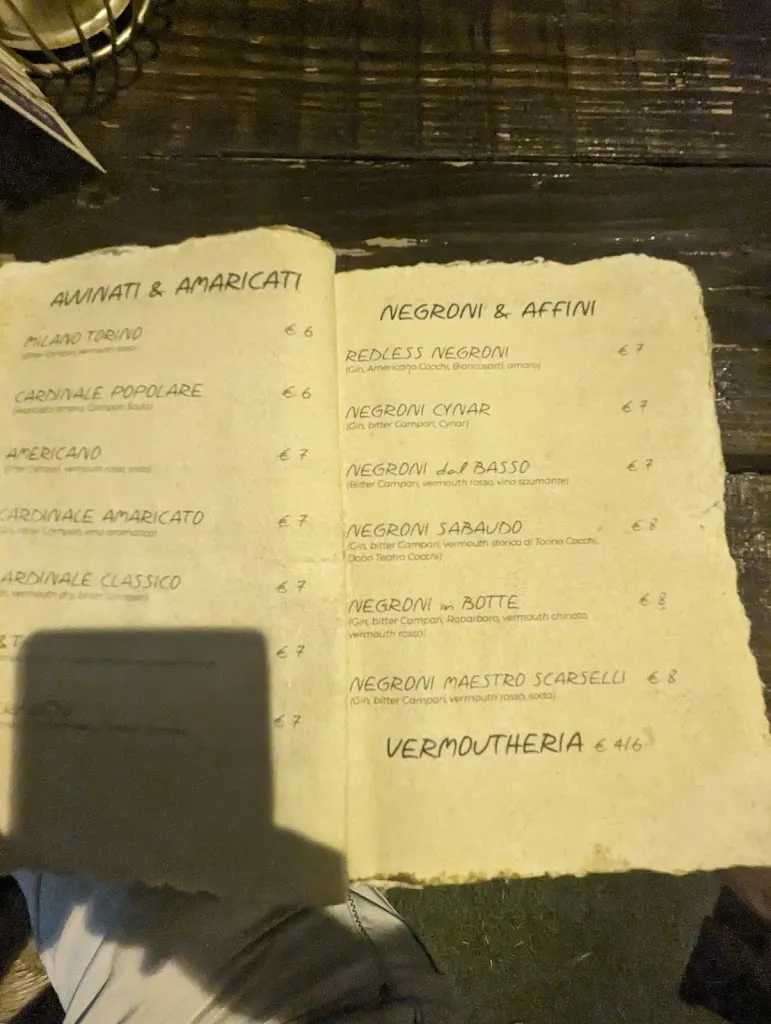 AVVINATI & AMARICATI
MILANO TORINO € 6
(Bitter Campari, vermouth rosso)
CARDINALE POPOLARE € 6
Campari, Soda)
AMERICANO € 7
Campari, vermouth rosso, soda)
CARDINALE AMARICATO € 7
bitter Campari, vino aromatizzato)
ARDINALE CLASSICO € 7
vermouth dry, bitter Campari)
€ 7
€ 7
NEGRONI & AFFINI
REDLESS NEGRONI € 7
(Gin, Americano Cocchi, Biancosarti, amaro)
NEGRONI CYNAR € 7
(Gin, bitter Campari, Cynar)
NEGRONI dal BASSO € 7
(Bitter Campari, vermouth rosso, vino spumante)
NEGRONI SABAUDO € 8
(Gin, bitter Campari, vermouth storico di Torino Cocchi,
Dopo Teatro Cocchi)
NEGRONI in BOTTE € 8
(Gin, bitter Campari, Rabarbaro, vermouth chinato,
vermouth rosso)
NEGRONI MAESTRO SCARSELLI € 8
(Gin, bitter Campari, vermouth rosso, soda)
VERMOUTHERIA € 4/6